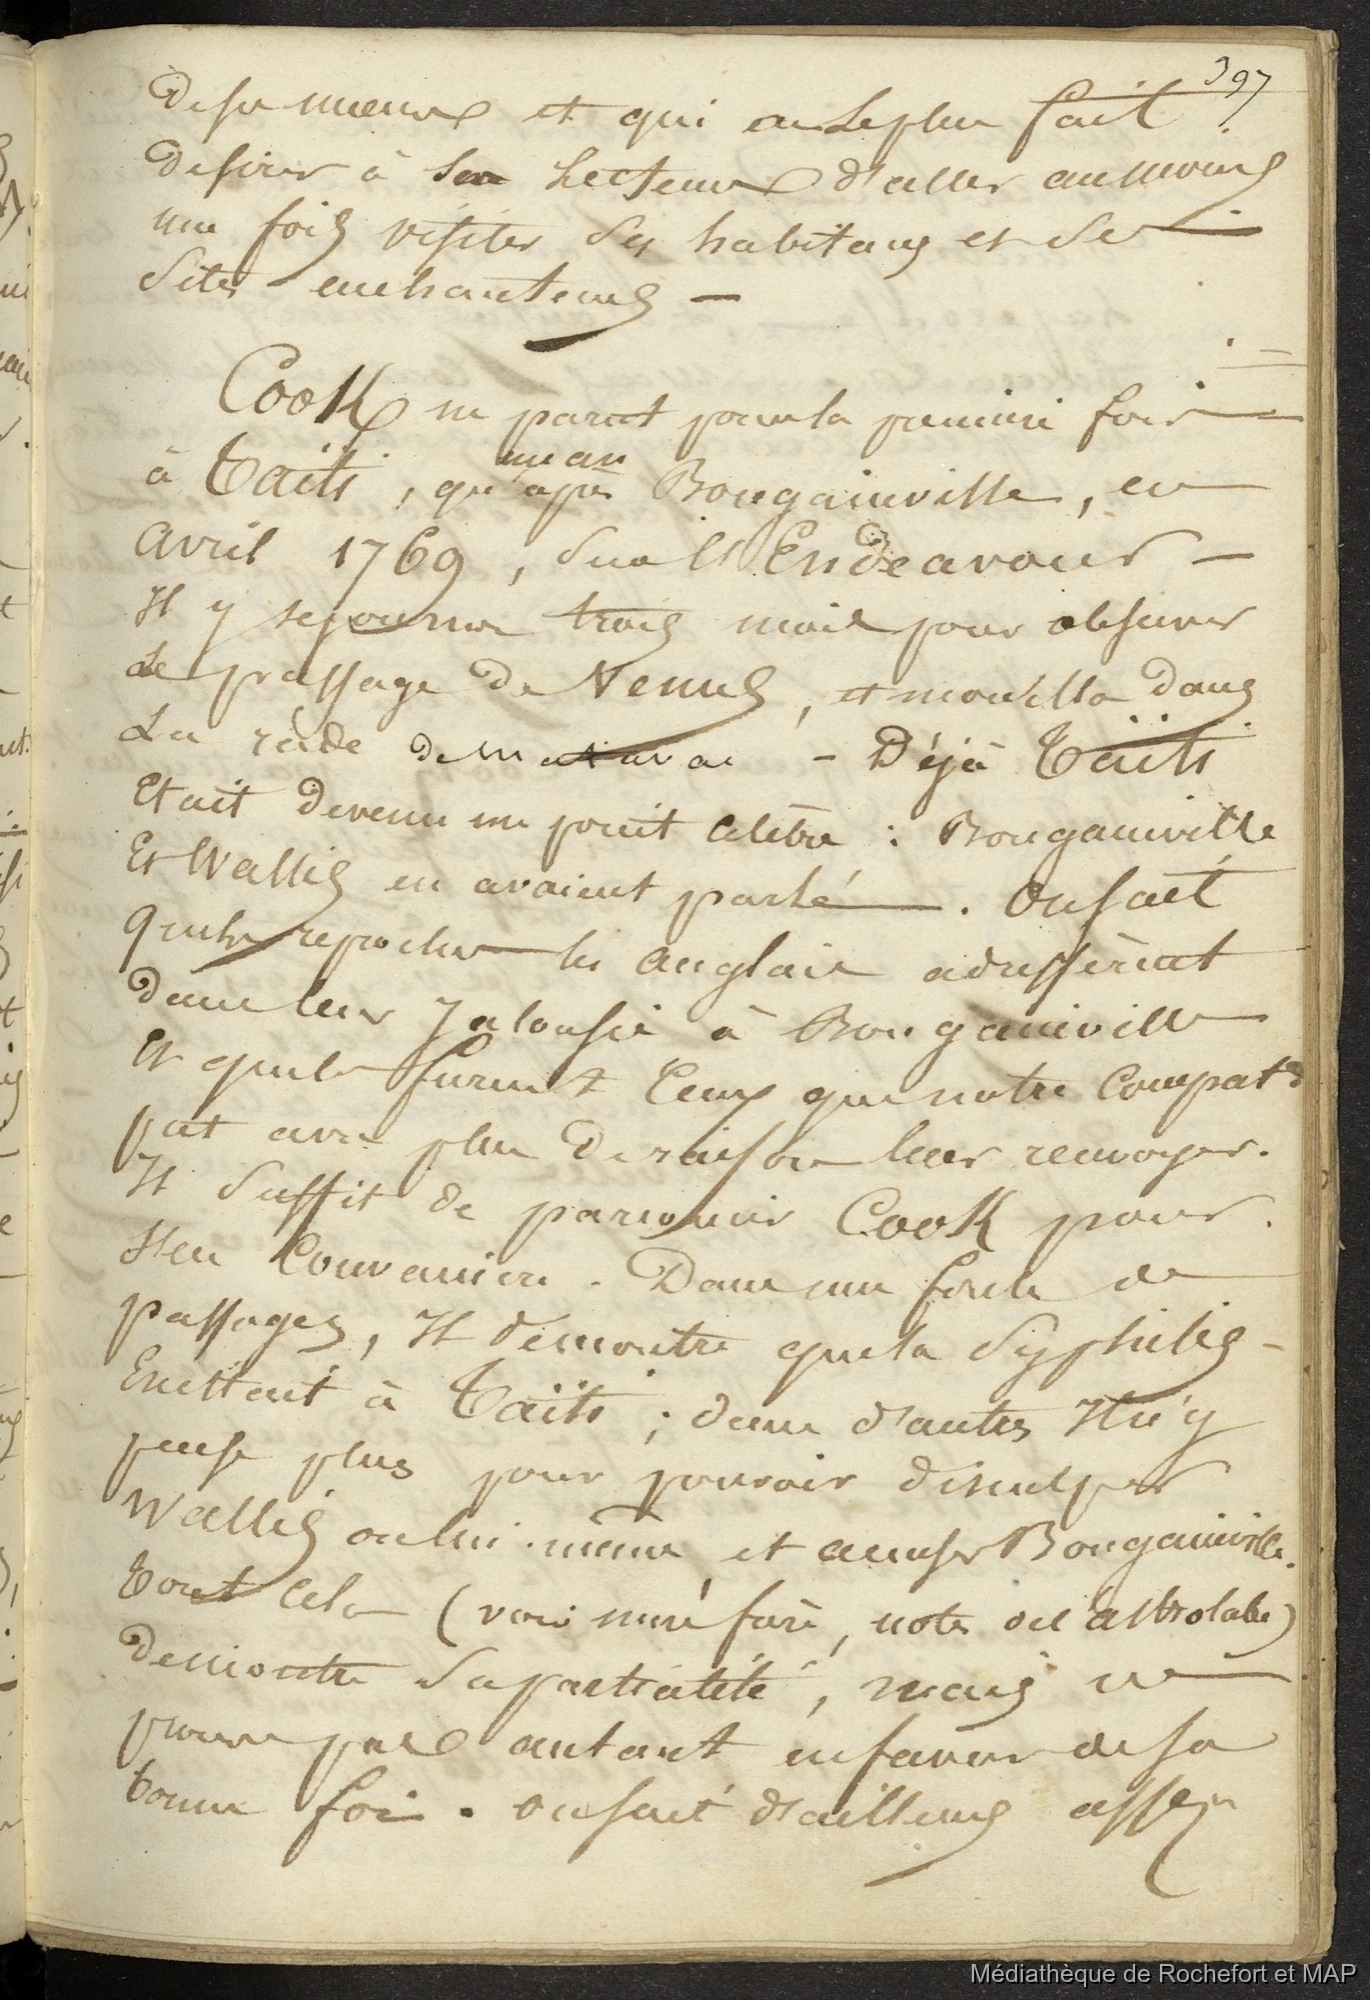 397
De ses mœurs et qui a le plus fait
desirer à ses Lecteurs d'aller au moins
une fois visiter ses habitans et ses
sites enchanteurs —
Cook ne parut pour la premiere fois
à Taïti, qu'un an après Bougainville, en
avril 1769, sur l'Endeavour —
Il y sejourna trois mois pour observer
Le passage de Venus, et mouilla dans
La rade de Matavai — Déjà Taïti
Etait devenu un point célèbre : Bougainville
Et Wallis en avaient parlé. On sait
quels reproches les anglais adressèrent
dans leur Jalousie à Bougainville
Et quels furent Ceux que notre Compat.
put avec plus de raison leur renvoyer.
Il suffit de parcourir Cook pour
s'en Convaincre. Dans une foule de
passages, Il démontre que la Syphilis
Existait à Taïti ; dans d'autres Il n'y
pense plus pour pouvoir disculper
Wallis ou lui-même et accuser Bougainville.
Tout Cela (voir notes de l'astrolabe)
Demontre sa partialité, mais ne
prouve pas autant en faveur de sa
bonne foi. On sait d'ailleurs assez
Médiathèque de Rochefort et MAP